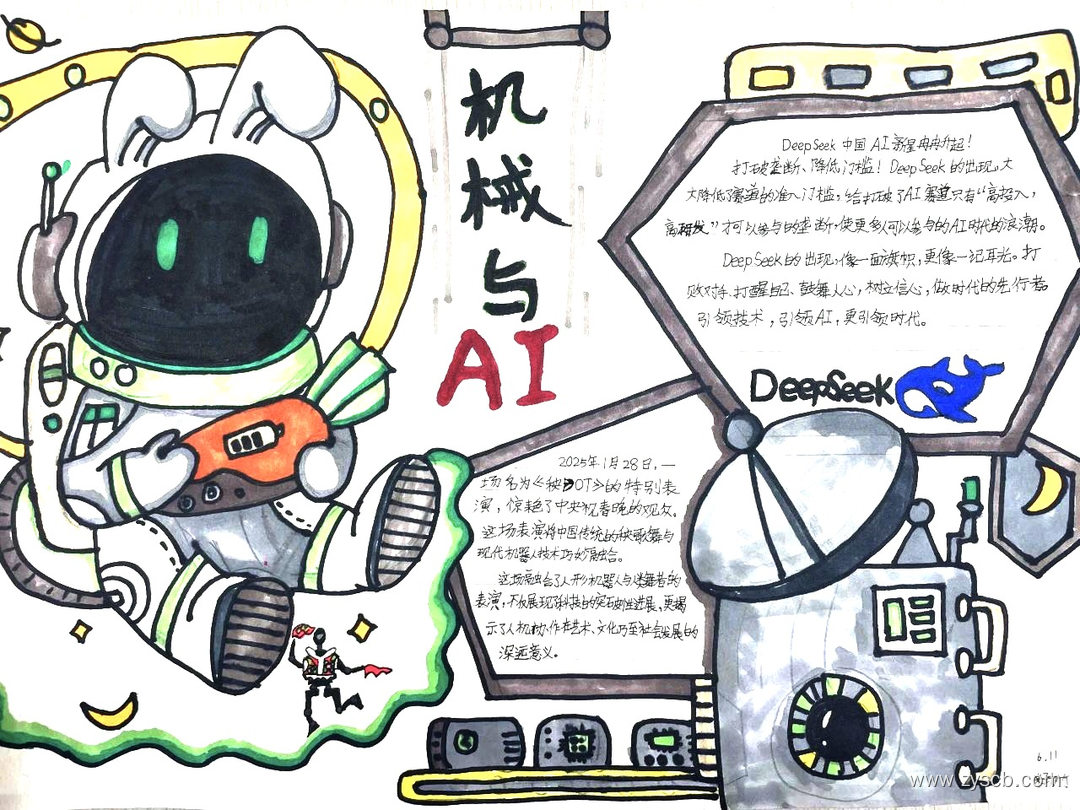 机械与
AI
DeepSeek 中国 AI 新星冉冉升起!
打破垄断、降低门槛! DeepSeek 的出现,大
大降低了赛道的准入门槛,给打破了AI赛道只有“高投入,
高研发”才可以参与的垄断,使更多人可以参与的AI时代的浪潮。
DeepSeek的出现,像一面旗帜,更像一记耳光。打
败对手、打醒自己、鼓舞人心,树立信心,做时代的先行者
引领技术,引领AI,更引领时代。
DeepSeek
2025年1月28日,一
场名为《秧BOT》的特别表
演,惊艳了中央视春晚的观众。
这场表演将中国传统的秧歌舞与
现代机器人技术巧妙融合。
这场融合了人形机器人与舞者的
表演,不仅展现了科技的突破性进展,更揭
示了人机协作在艺术、文化乃至社会发展的
深远意义。
6.11
www.zyscb.com